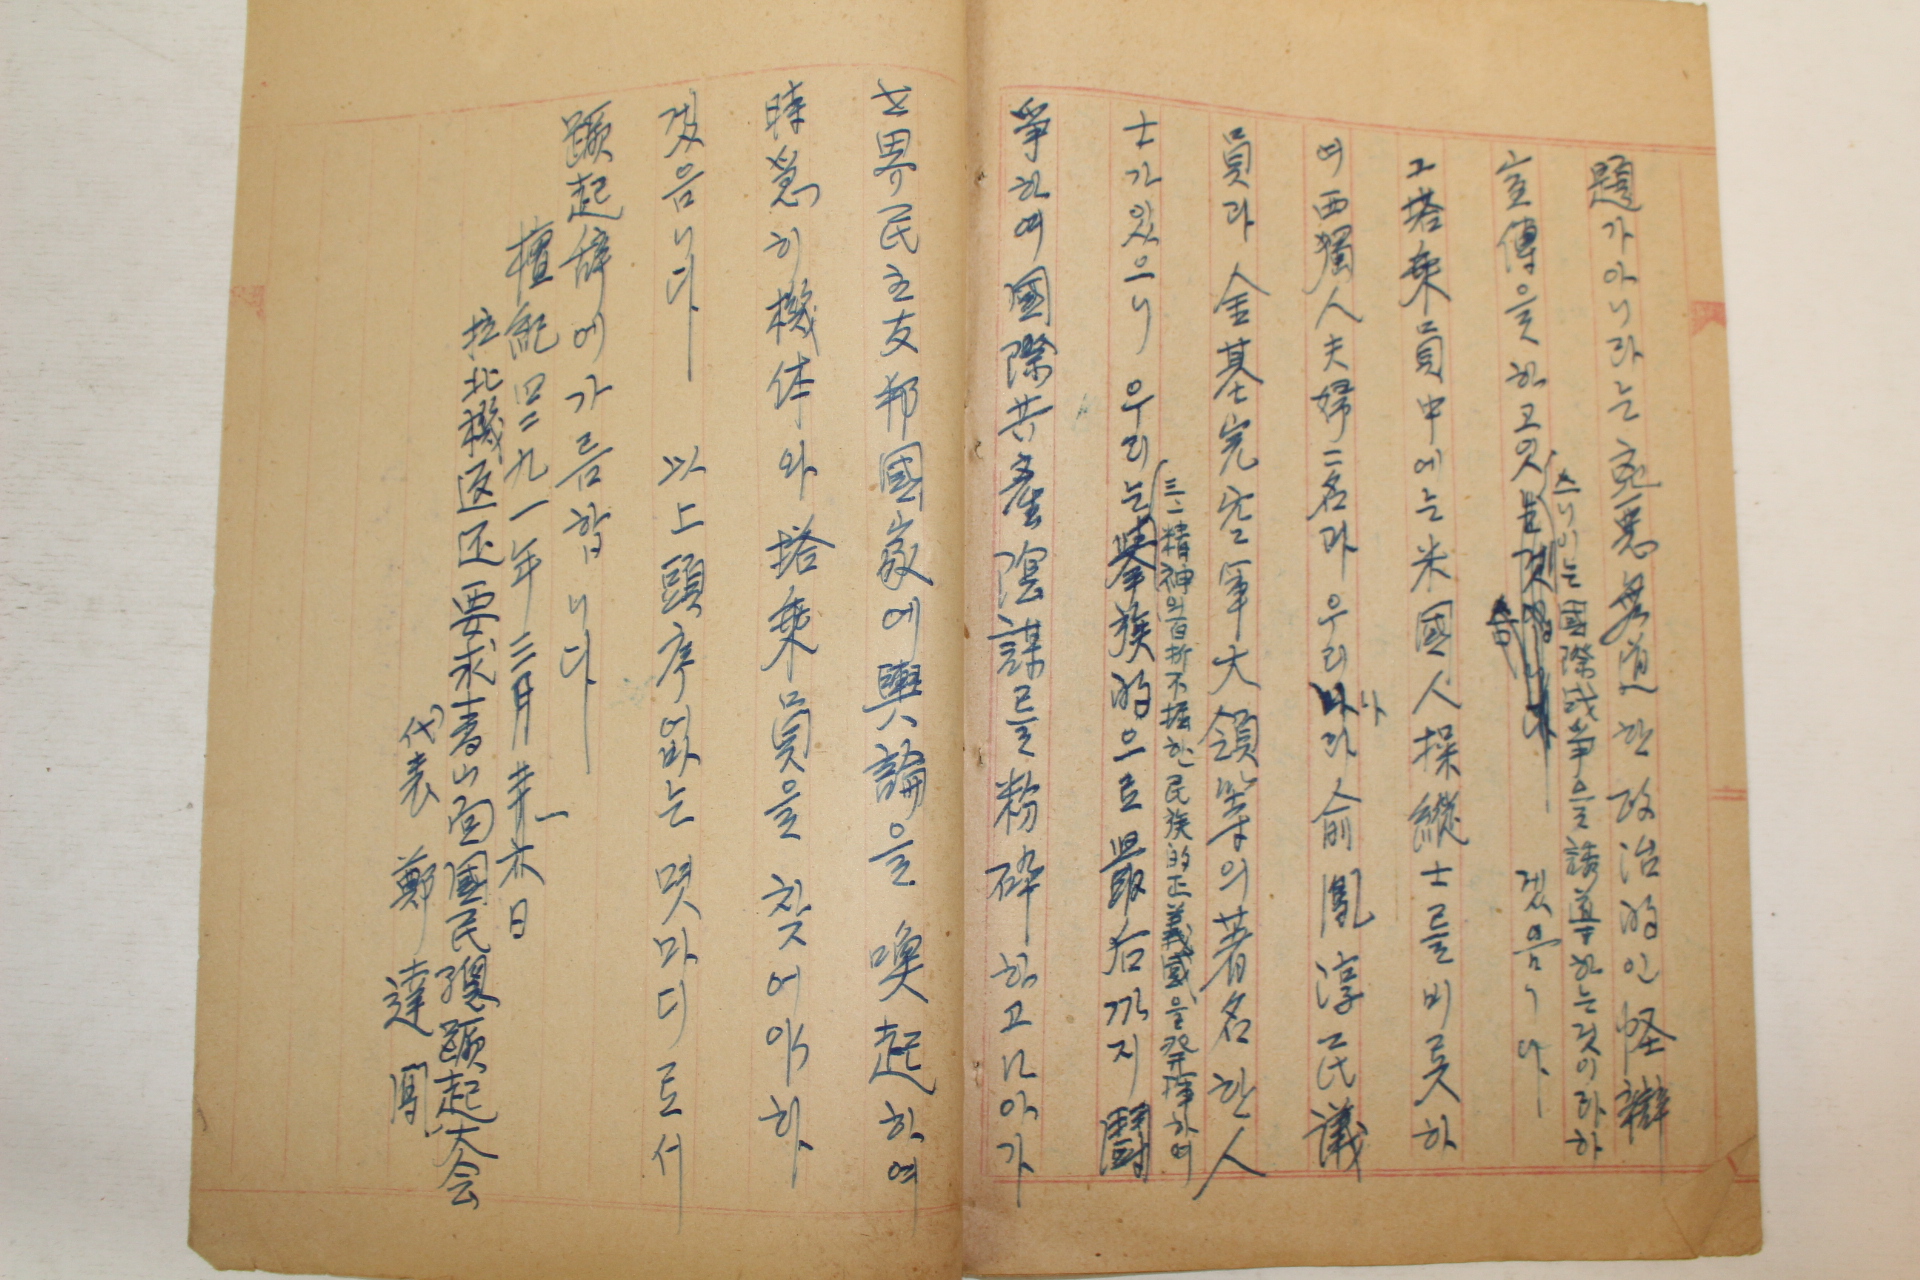 題가아니라는 惡無道한政治的인怪辯
宣傳을하고있
스니이는國際戰爭을誘導하는것이라하
겠음니다
그塔乘員中에는米國人操縱士를비롯하
여西獨人夫婦二名과우리나라俞鳳淳民議
員과金基完空軍大領等의著名한人
士가있으니우리는擧族的으로最后까지鬪
三一精神의百折不掘한民族的正義感을發揮하여
爭하여國際共産陰謀를粉碎하고나아가
世界民主友邦國家에輿論을喚起하여
時急히機体와塔乘員을찾어야하
겠음니다 以上頭序없는몃마디로서
蹶起辞에가름함니다
檀紀四二九一年三月 六日
拉北機返还要求靑山面國民總蹶起大会
代表 鄭達鳳